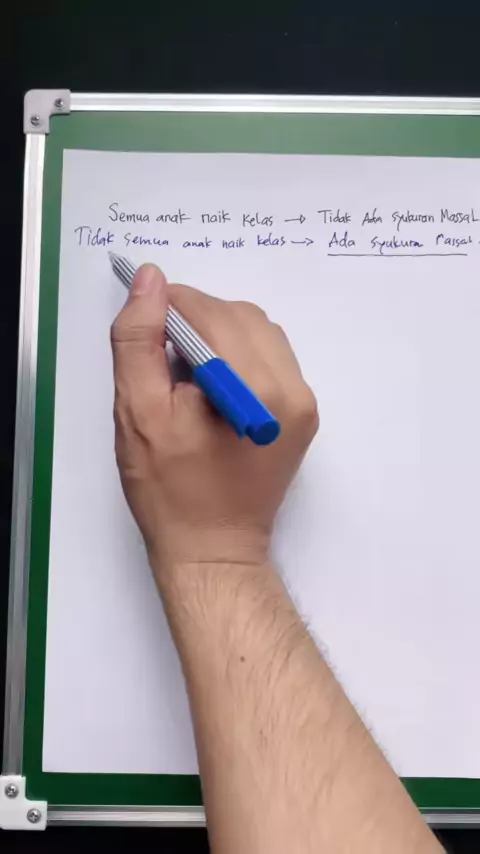 Semua anak naik kelas → Tidak Ada syukuran Massal
Tidak semua anak naik kelas → Ada syukuran Massal